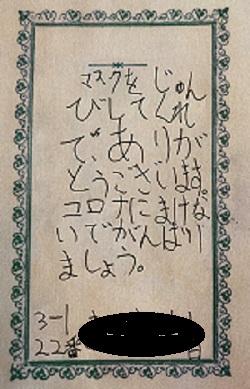 マスクをじゅん
びしてくれ
て、ありが
とうございます。
コロナにまけな
いでがんばり
ましょう。
3-1
22番